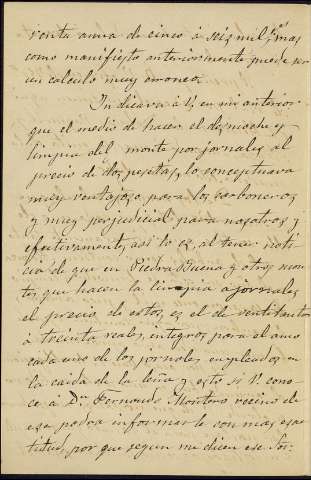 renta anua de cinco á seis mil rs. mas
como manifiesto anteriormente puede ser
un calculo muy erroneo.
Indicava á V. en mi anterior
que el medio de hacer el desmoche y
limpia del monte por jornales al
precio de dos pesetas, lo conceptuava
muy ventajoso para los carboneros
y muy perjudicial para nosotros y
efectivamente, así lo es, al tener noti-
cia de que en Piedra Buena y otros mon-
tes que hacen la limpia a jornales
el precio de estos, es el de
á treinta reales, integros para el amo
cada uno de los jornales empleados en
la caida de la leña y esto si V. cono-
ce á Dn. Fernando Montero vecino de
esa podra informarle con mas esac-
titud, por que segun me dicen ese